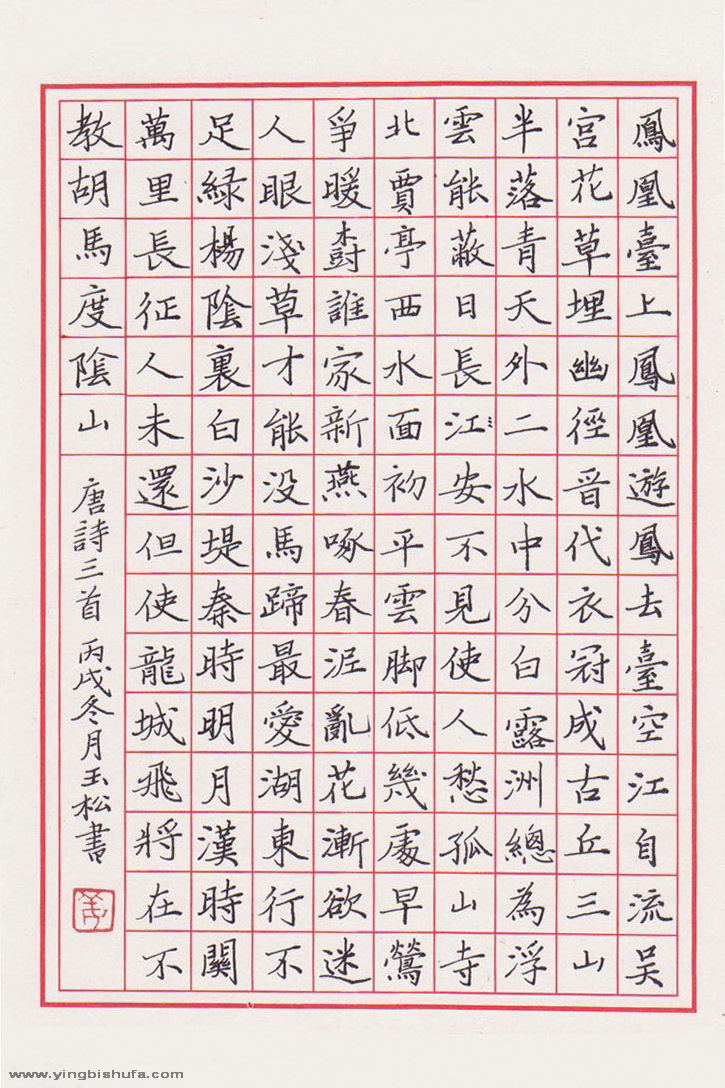 鳳凰臺上鳳凰遊鳳去臺空江自流吴
宫花草埋幽徑晋代衣冠成古丘三山
半落青天外二水中分白露洲總為浮
雲能蔽日長江安不見使人愁孤山寺
北賈亭西水面初平雲脚低幾處早鶯
爭暖樹誰家新燕啄春泥亂花漸欲迷
人眼淺草才能没馬蹄最愛湖東行不
足緑楊陰裏白沙堤秦時明月漢時關
萬里長征人未還但使龍城飛將在不
教胡馬度陰山 唐詩三首 丙戌冬月玉松書
www.yingbishufa.com